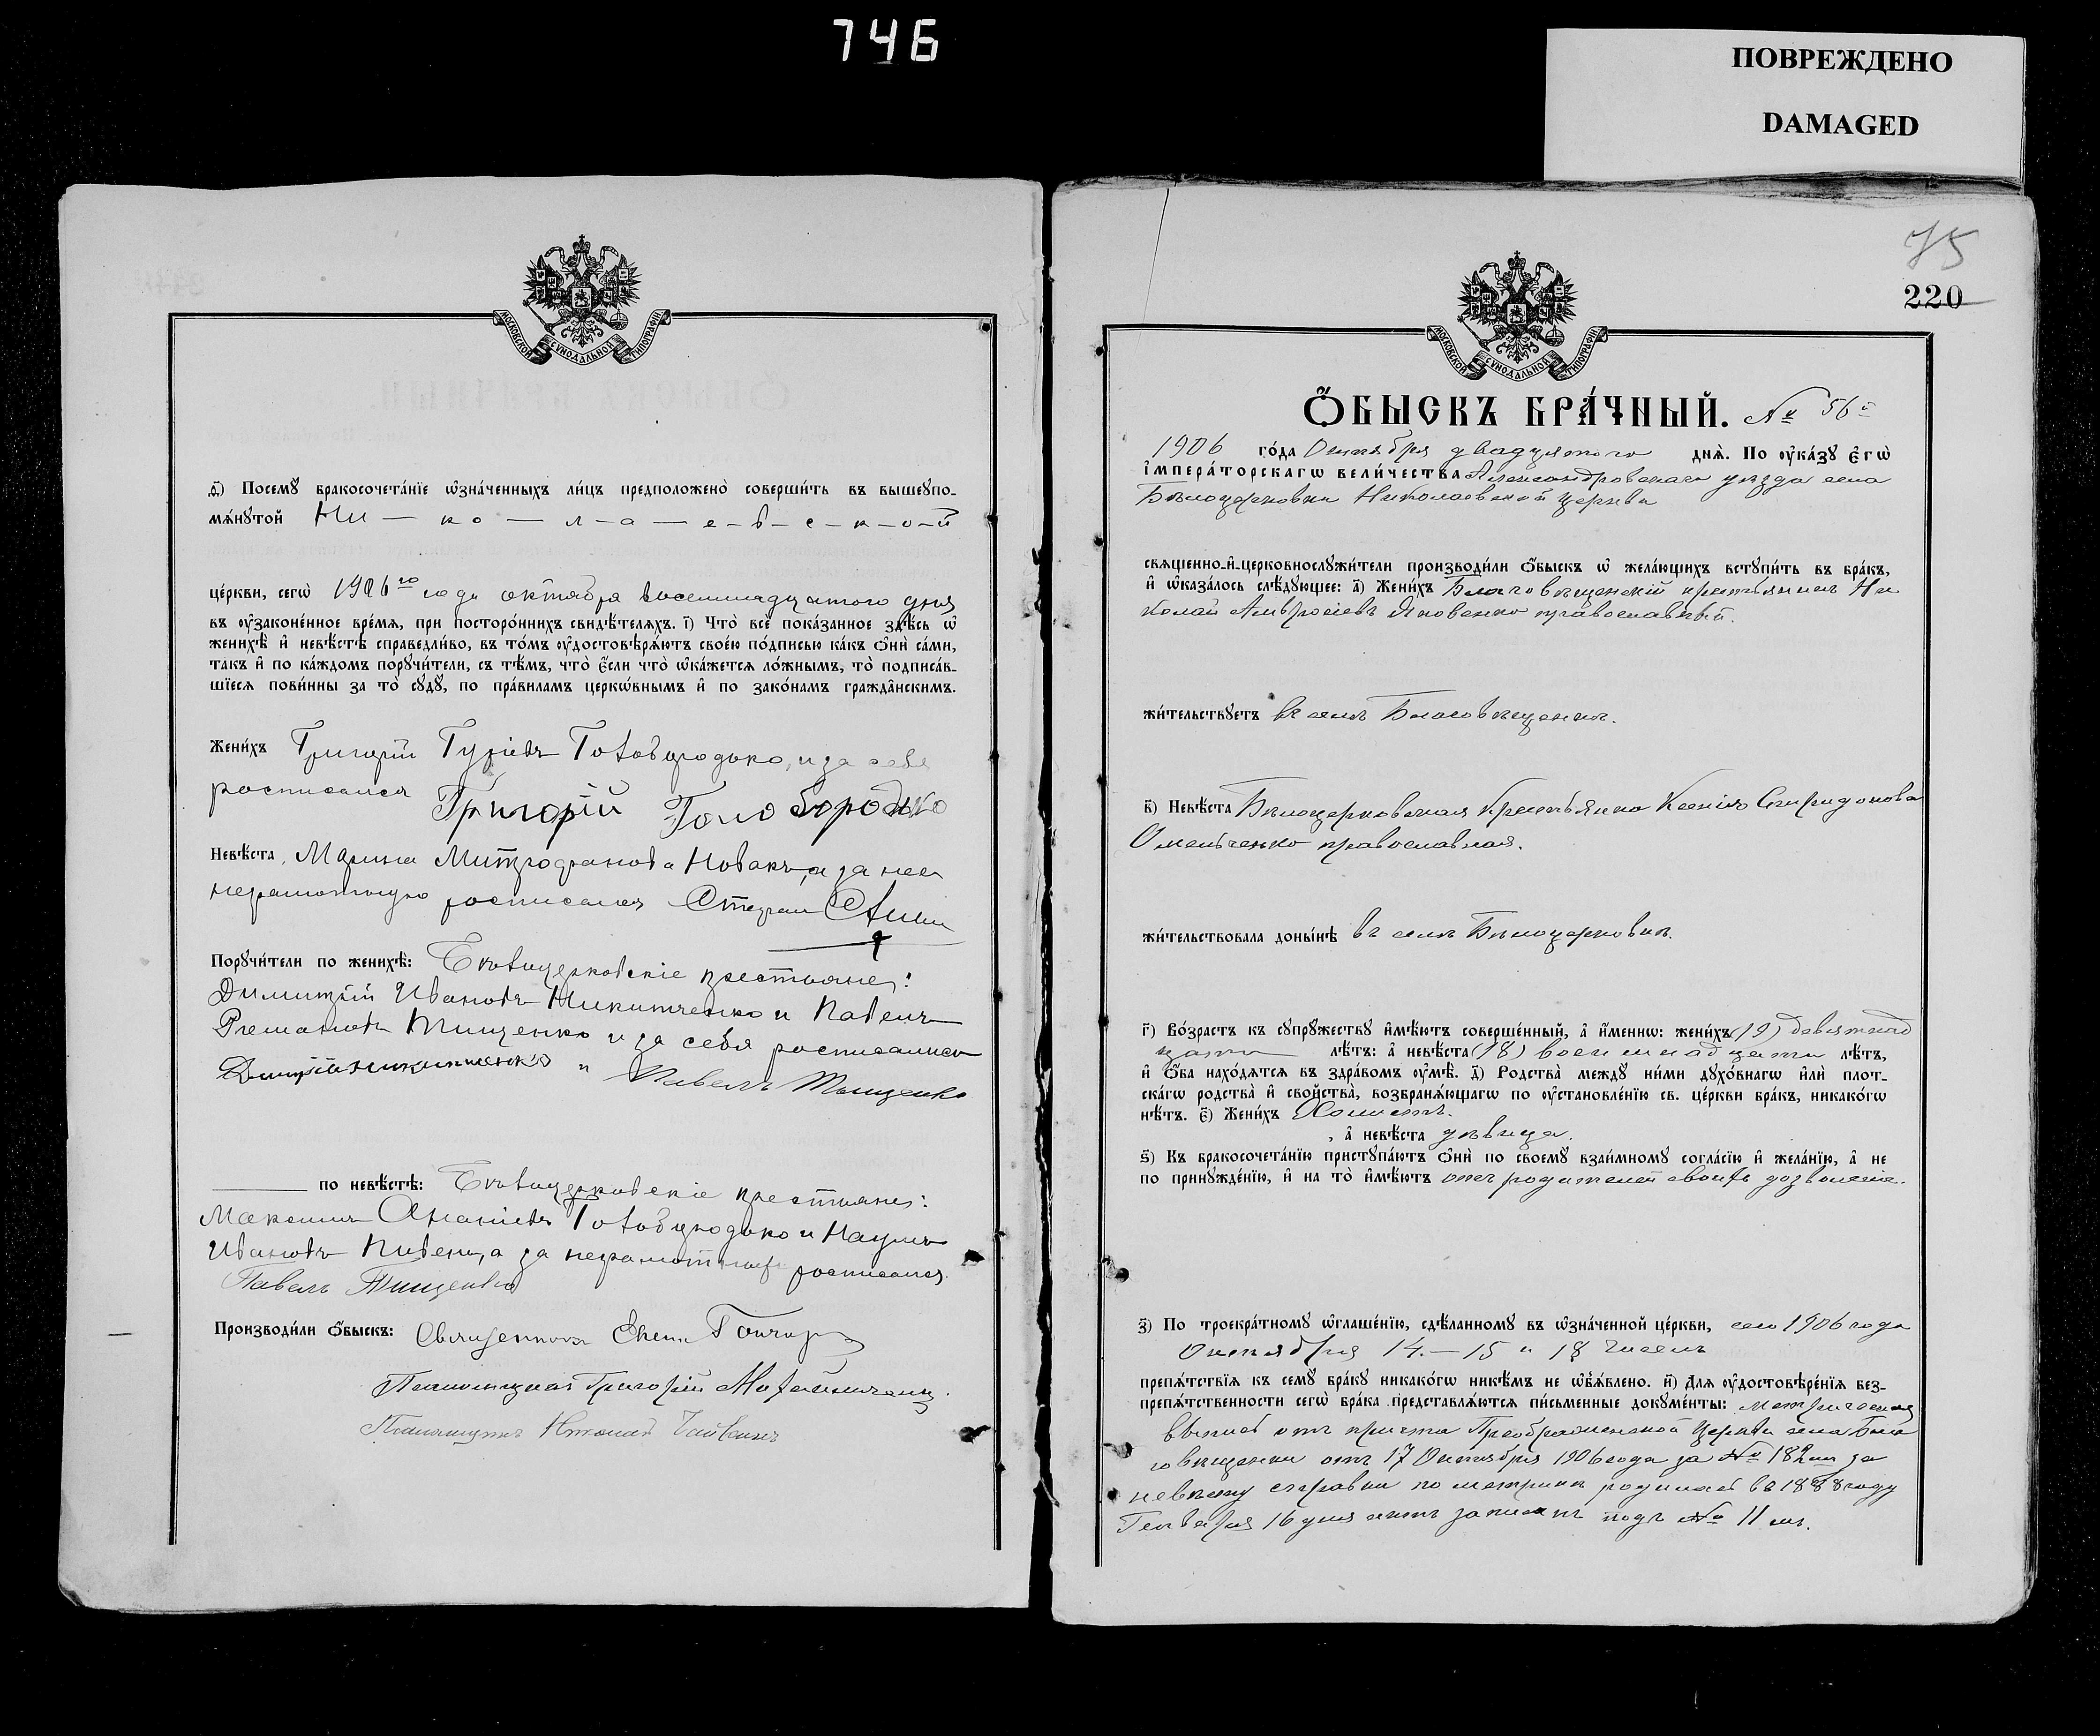 746
ПОВРЕЖДЕНО
DAMAGED
МОСКОВСКОЙ СѴНОДАЛЬНОЙ ТИПОГРАФІИ
ѳ҃) Посемꙋ̀ бракосочета́нїе ѡ҆зна́ченныхъ ли́цъ предположено̀ соверши́ть въ вышеꙋпо-
мѧ́нꙋтой Ни — ко — л — а — е — в — с — к — о — й
це́ркви, сегѡ̀ 1906го года октября восемнадцатого дня
въ ᲂу҆законе́нное вре́мѧ, при посторо́ннихъ свидѣ́телѧхъ. і҃) Что̀ всѐ пока́занное здѣ́сь ѡ҆
женихѣ̀ и҆ невѣ́стѣ справедли́во, въ то́мъ ᲂу҆достовѣрѧ́ютъ свое́ю по́дписью ка́къ ѻ҆нѝ са́ми,
та́къ и҆ по ка́ждомъ порꙋчи́тели, съ тѣ́мъ, что̀ є҆́сли что̀ ѡ҆ка́жетсѧ ло́жнымъ, то̀ подписа́в-
шїесѧ пови́нны за то̀ сꙋдꙋ̀, по пра́виламъ церкѡ́внымъ и҆ по зако́намъ гражда̑нскимъ.
Жени́хъ Григорій Гуріевъ Голобородько, и за себя
росписался Григорій Голобородько
Невѣ́ста Марина Митрофанова Новакъ, а за нее
неграмотную росписался Стефан
Порꙋчи́тели по женихѣ̀: Бѣлоцерковскіе крестьяне:
Димитрій Ивановъ Никитченко и Павелъ
Тищенко и за себя росписались
Димитрій Никитченко и Павелъ Тищенко
по невѣ́стѣ: Бѣлоцерковскіе крестьяне:
Максимъ Ананіевъ Голобородько и Наумъ
Ивановъ Пивень, а за неграмотных росписался
Павелъ Тищенко
Производи́ли ѻ҆́быскъ: Священникъ Гончаръ
Псаломщикъ Григорій
Псаломщикъ Николай
75
220
МОСКОВСКОЙ СѴНОДАЛЬНОЙ ТИПОГРАФІИ
Ѻ҆́БЫСКЪ БРА́ЧНЫЙ. № 56й
1906 го́да Октября двадцятого днѧ̀. По ᲂу҆ка́зꙋ є҆гѡ̀
і҆мпера́торскагѡ вели́чества Александровскаго уѣзда села
Бѣлоцерковки Николаевской церкви
свѧще́нно-и҆-церковнослꙋжи́тели производи́ли ѻ҆́быскъ ѡ҆ жела́ющихъ встꙋпи́ть въ бра́къ,
и҆ ѡ҆каза́лось слѣ́дꙋющее: а҃) Жени́хъ Благовѣщенскій крестьянинъ Ни
колай Амвросіевъ Яковенко православный.
жи́тельствꙋетъ въ селѣ Благовѣщенкѣ.
в҃) Невѣ́ста Бѣлоцерковская крестьянка Ксенія Спиридонова
Омельченко православная.
жи́тельствовала доны́нѣ въ селѣ Бѣлоцерковкѣ.
г҃) Во́зрастъ къ сꙋпрꙋ́жествꙋ и҆мѣ́ютъ соверше́нный, а҆ и҆́меннѡ: жени́хъ (19) девятнад
цати лѣ́тъ: а҆ невѣ́ста (18) восемнадцати лѣ́тъ,
и҆ ѻ҆́ба нахо́дѧтсѧ въ здра́вомъ ᲂу҆мѣ̀. д҃) Родства̀ междꙋ̀ ни́ми дꙋхо́внагѡ и҆лѝ плот-
ска́гѡ родства̀ и҆ сво́йства̀, возбранѧ́ющагѡ по ᲂу҆становле́нїю св. це́ркви бра́къ, никако́гѡ
нѣ́тъ. є҃) Жени́хъ Холостъ.
, а҆ невѣ́ста дѣвица.
ѕ҃) Къ бракосочета́нїю пристꙋпа́ютъ ѻ҆нѝ по своемꙋ̀ взаи́мномꙋ согла́сїю и҆ жела́нїю, а҆ не
по принꙋжде́нїю, и҆ на то̀ и҆мѣ́ютъ отъ родителей своихъ дозволеніе.
з҃) По троекра́тномꙋ ѡ҆глаше́нїю, сдѣ́ланномꙋ въ ѡ҆зна́ченной це́ркви, сего 1906 года
Октября 14.—15 и 18 чиселъ
препѧ́тствїѧ къ семꙋ̀ бра́кꙋ никако́гѡ никѣ́мъ не ѡ҆б̾ѧ́влено. и҃) Длѧ ᲂу҆достовѣре́нїѧ без-
препѧ́тственности сегѡ̀ бра́ка представлѧ́ютсѧ пи́сьменные докꙋме́нты: метрическая
выпись отъ причта Преображенской церкви села Бла
говѣщенки отъ 17 Октября 1906 года за № 182мъ за
невѣсту справки по метрикѣ родилась въ 1888 году
Генваря 16 дня актъ записанъ подъ № 11мъ.